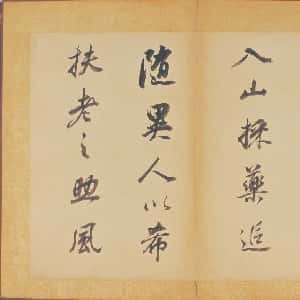 入山採藥追
随異人以希
扶老之䀋風